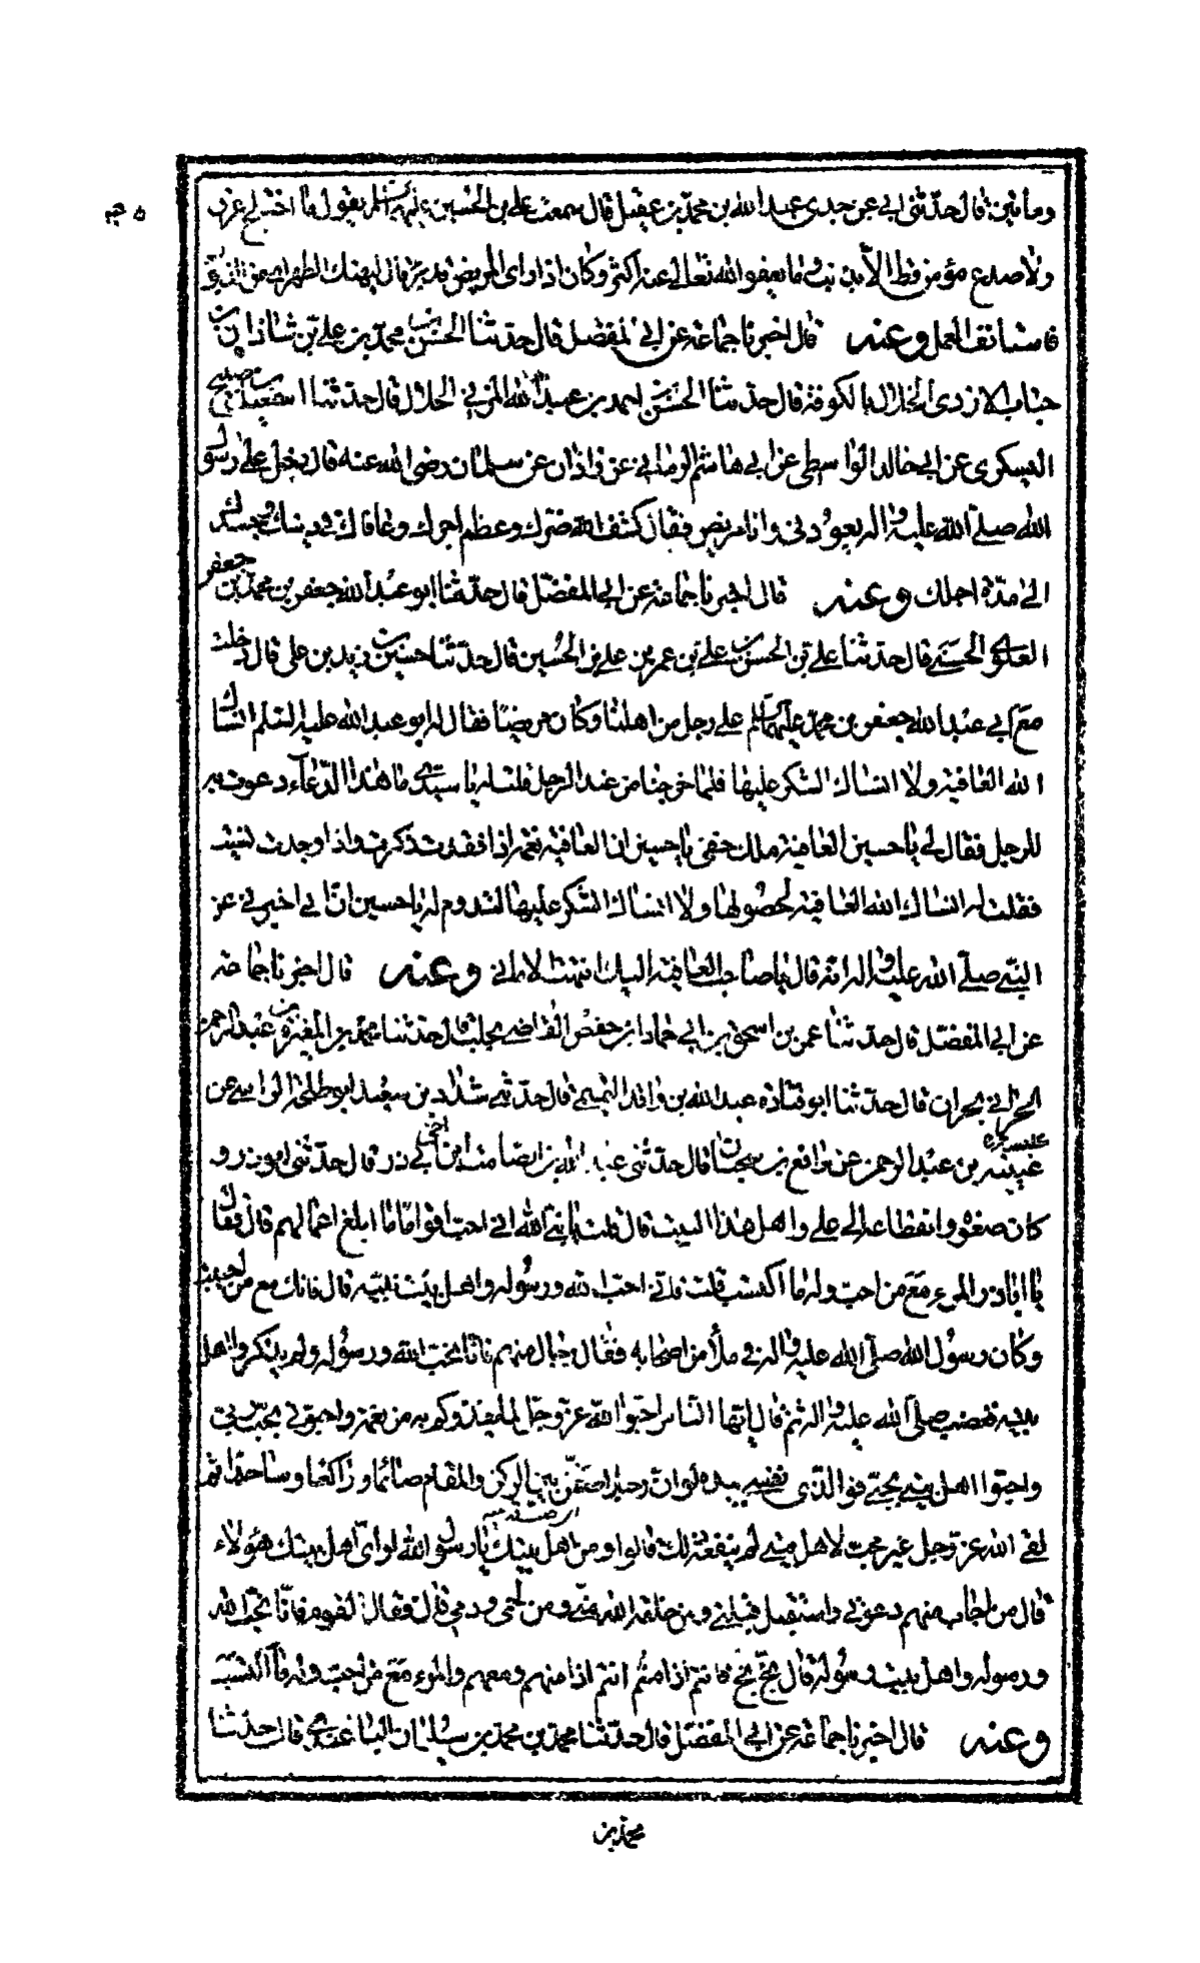 ومأتين قال حدثنى ابى عن جدى عبدالله بن محمد بن عقيل قال سمعت على بن الحسين عليهما السلم يقول ما اختلج عرق
ولا صدع مؤمن قط الا بذنبه وما يعفو الله تعالى عنه اكثر وكان اذا راى المريض قد برئ قال ليهنك الطهر من الذنوب
فاستانف العمل وعنه قال اخبرنا جماعة عن ابى المفضل قال حدثنا الحسن بن محمد بن على بن شاذان بن
حباب الازدى الخلال بالكوفة قال حدثنا الحسن بن احمد بن عبدالله المزنى الحلال قال حدثنا اسمعيل بن صبيح
اليسكرى عن ابى خالد الواسطى عن ابى هاشم الرمانى عن زاذان عن سلمان رضى الله عنه قال دخل على رسول
الله صلى الله عليه واله يعودنى وانا مريض فقال كشف الله ضرك وعظم اجرك وعافاك فى دينك وجسدك
الى مدة اجلك وعنه قال اخبرنا جماعة عن ابى المفضل قال حدثنا ابو عبدالله جعفر بن محمد بن جعفر
العلوى الحسنى قال حدثنا على بن الحسن بن على بن عمر بن على بن الحسين قال حدثنا حسين بن زيد بن على قال دخلت
مع ابى عبدالله جعفر بن محمد عليهما السلم على رجل من اهلنا وكان مريضا فقال له ابو عبدالله عليه السلم انساك
الله العافية ولا انساك الشكر عليها فلما خرجنا من عند الرجل قلت له يا سيدى ما هذا الدعاء دعوت به
للرجل فقال لى يا حسين العافية ملك خفى يا حسين ان العافية نعمة اذا فقدت ذكرت واذا وجدت نسيت
فقلت له انساك الله العافية لحصولها ولا انساك الشكر عليها لتدوم له يا حسين ان ابى اخبرنى عن
النبى صلى الله عليه واله انه قال يا صاحب العافية اليك انتهت الامانى وعنه قال اخبرنا جماعة
عن ابى المفضل قال حدثنا عمر بن اسحق بن ابى حماد بن حفص القاضى بحلب قال حدثنا محمد بن المغيرة بن عبدالرحمن
الحرانى بحران قال حدثنا ابو قتادة عبدالله بن واقد التميمى قال حدثنى شداد بن سعيد ابو طلحة الراسبى عن
عيينة بن عبدالرحمن عن رافع بن سحبان قال حدثنى عبدالله بن الصامت ابن اخى ابى ذر قال حدثنى ابوذر و
كان صغوه وانقطاعه الى على واهل هذا البيت قال قلت يا نبى الله انى احب اقواما ما ابلغ اعمالهم قال فقال
يا اباذر المرء مع من احب وله ما اكتسب قلت فانى احب الله ورسوله واهل بيت نبيه قال فانك مع من احببت
وكان رسول الله صلى الله عليه واله فى ملأ من اصحابه فقال رجال منهم فانا نحب الله ورسوله ولم يذكروا اهل
بيته فغضب صلى الله عليه واله ثم قال ايها الناس احبوا الله عز وجل لما يغذوكم به من نعمة واحبونى بحب ربى
واحبوا اهل بيتى بحبى فوالذى نفسى بيده لو ان رجلا صفن بين الركن والمقام صائما وراكعا وساجدا ثم
لقى الله عز وجل غير محب لاهل بيتى لم ينفعه ذلك قالوا ومن اهل بيتك يا رسول الله او اى اهل بيتك هؤلاء
قال من اجاب منهم دعوتى واستقبل قبلتى ومن خلقه الله منى ومن لحمى ودمى قال فقال القوم فانا نحب الله
ورسوله واهل بيت رسوله قال بخ بخ فانتم اذا منهم انتم اذا منهم ومعهم والمرء مع من احب وله ما اكتسب
وعنه قال اخبرنا جماعة عن ابى المفضل قال حدثنا محمد بن محمد بن سليمان الباغندى قال حدثنا
محمد بن